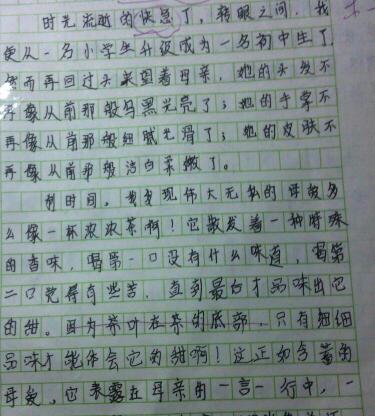 时光流逝的快急了，转眼之间，我
便从一名小学生升级成为一名初中生了
然而再回过头来望着母亲，她的头发不
再像从前那般乌黑光亮了；她的手掌不
再像从前那般细腻光滑了；她的皮肤不
再像从前那般洁白柔嫩了。
刹时间，我发现伟大无私的母爱多
么像一杯浓浓茶啊！它散发着一种特殊
的香味，喝第一口没有什么味道，喝第
二口觉得有些苦，直到最后才品味出它
的甜。因为茶叶在茶的底部，只有细细
品味才能体会它的甜啊！这正如含蓄的
母爱，它表露在母亲的一言一行中，一